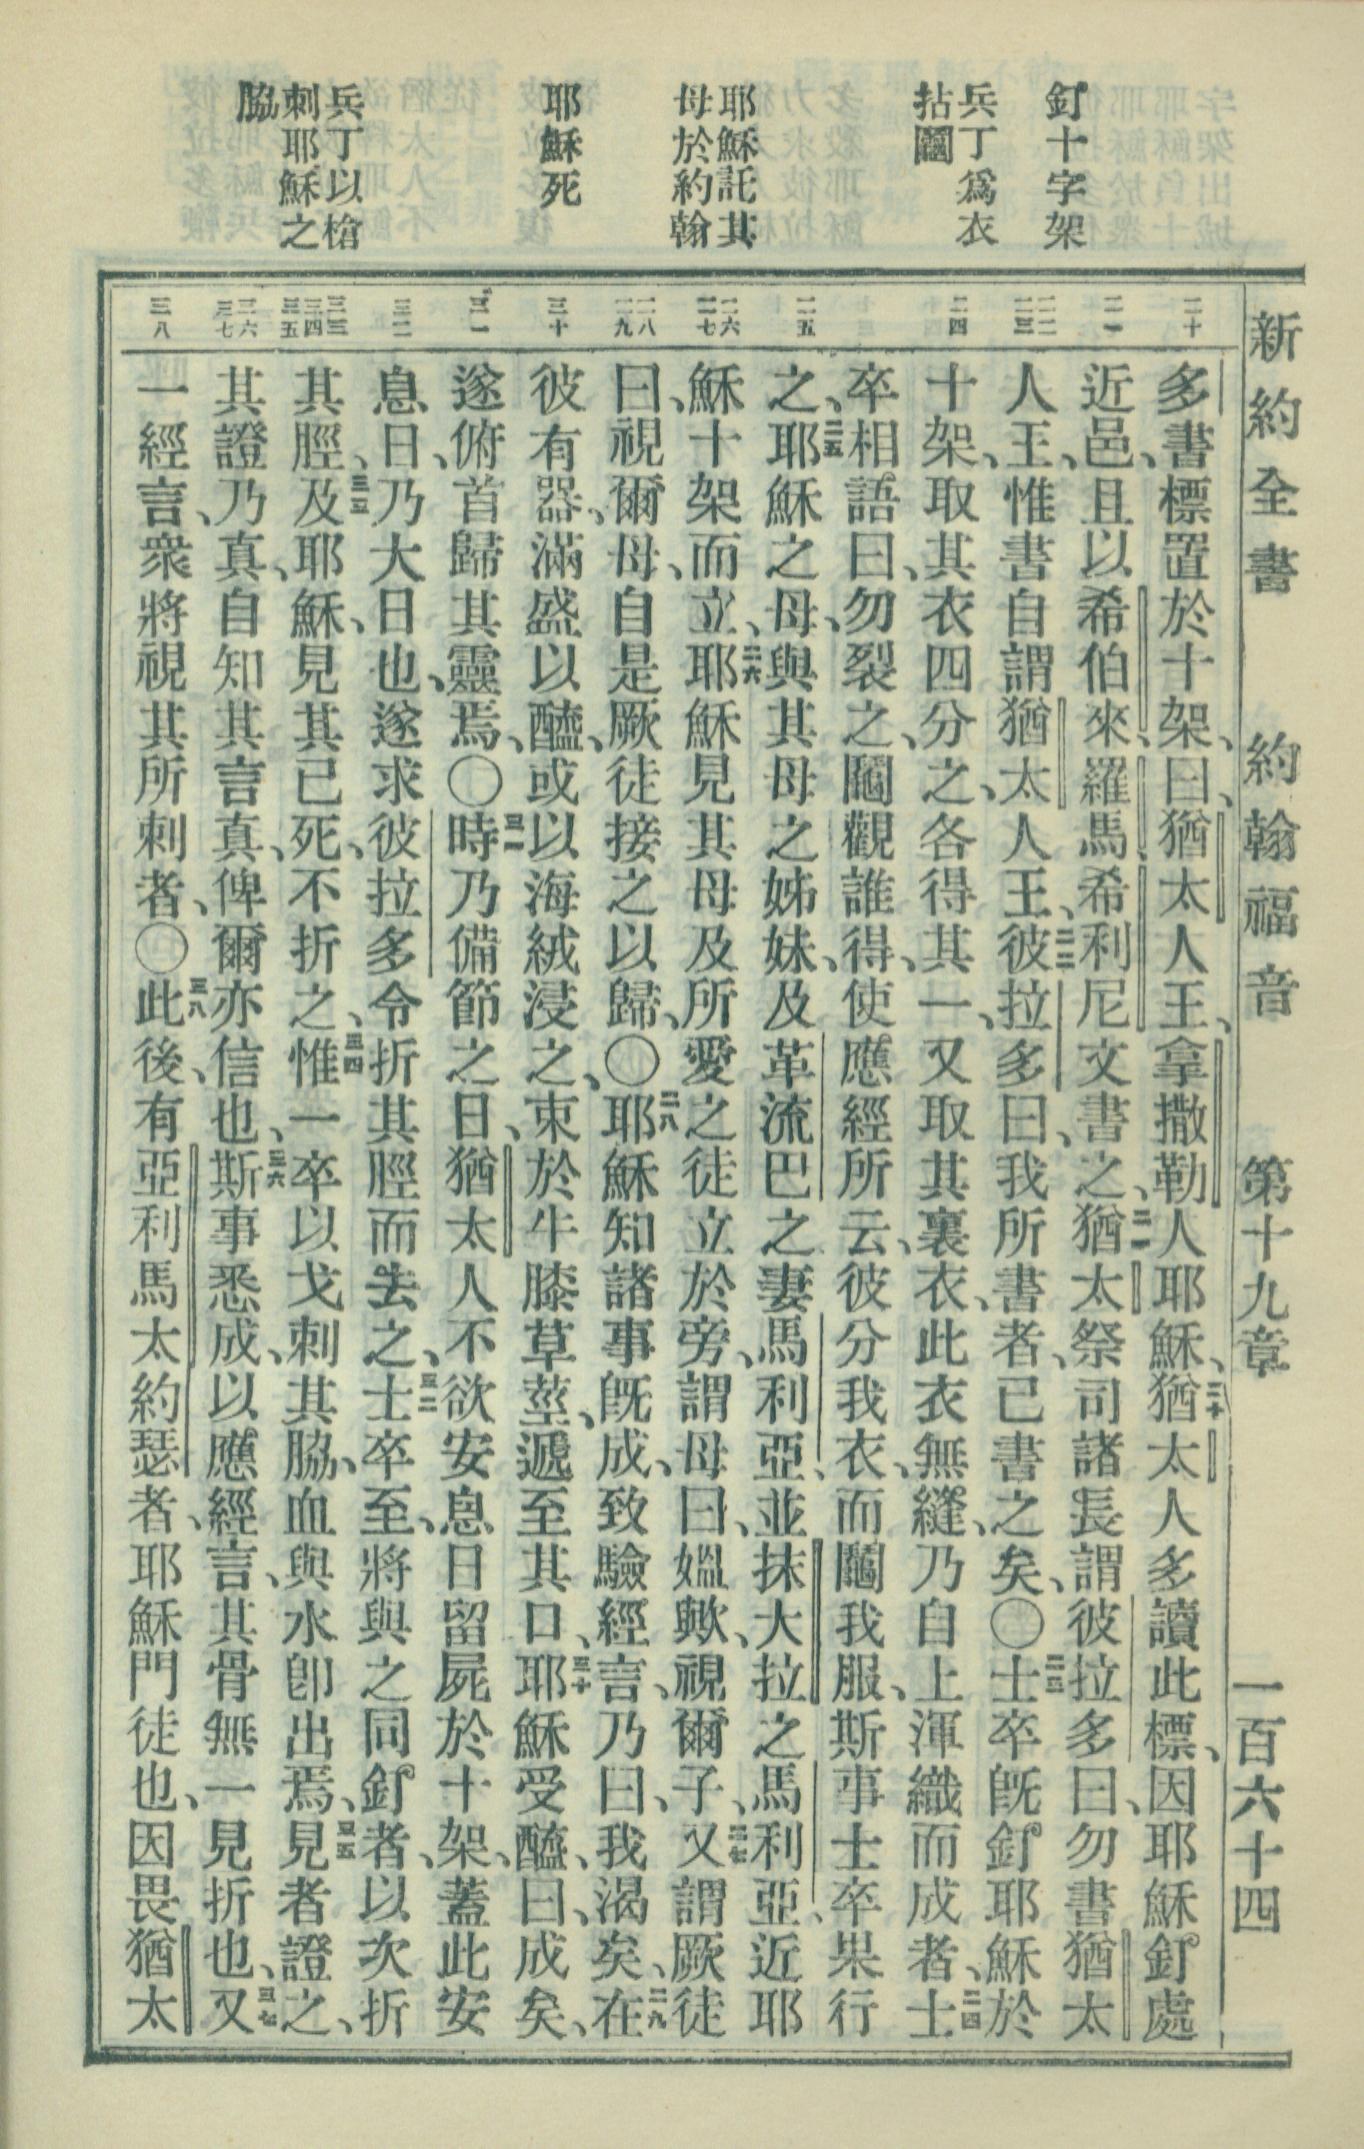 新約全書 約翰福音 第十九章 一百六十四
釘十字架
兵丁爲衣
拈鬮
耶穌託其
母於約翰
耶穌死
兵丁以槍
刺耶穌之
脇
二十
二一
二二
二三
二四
二五
二六
二七
二八
二九
三十
三一
三二
三三
三四
三五
三六
三七
三八
多書標置於十架、曰、猶太人王、拿撒勒人耶穌、二十猶太人多讀此標、因耶穌釘處
近邑、且以希伯來、羅馬、希利尼文書之、二一猶太祭司諸長謂彼拉多曰、勿書猶太
人王、惟書自謂猶太人王、二二彼拉多曰、我所書者、已書之矣、〇二三士卒旣釘耶穌於
十架、取其衣四分之、各得其一、又取其裏衣、此衣無縫、乃自上渾織而成者、二四士
卒相語曰、勿裂之、鬮觀誰得、使應經所云、彼分我衣、而鬮我服、斯事士卒果行
之、二五耶穌之母、與其母之姊妹、及革流巴之妻馬利亞、並抹大拉之馬利亞、近耶
穌十架而立、二六耶穌見其母及所愛之徒立於旁、謂母曰、媼歟、視爾子、二七又謂厥徒
曰、視爾母、自是厥徒接之以歸、〇二八耶穌知諸事旣成、致驗經言、乃曰、我渴矣、二九在
彼有器、滿盛以醯、或以海絨浸之、束於牛膝草莖、遞至其口、三十耶穌受醯、曰、成矣、
遂俯首歸其靈焉、〇三一時乃備節之日、猶太人不欲安息日留屍於十架、蓋此安
息日、乃大日也、遂求彼拉多令折其脛而去之、三二士卒至、將與之同釘者、以次折
其脛、三三及耶穌、見其已死、不折之、三四惟一卒以戈刺其脇、血與水卽出焉、三五見者證之、
其證乃真、自知其言真、俾爾亦信也、三六斯事悉成、以應經言、其骨無一見折也、三七又
一經言、衆將視其所刺者、〇三八此後、有亞利馬太約瑟者、耶穌門徒也、因畏猶太